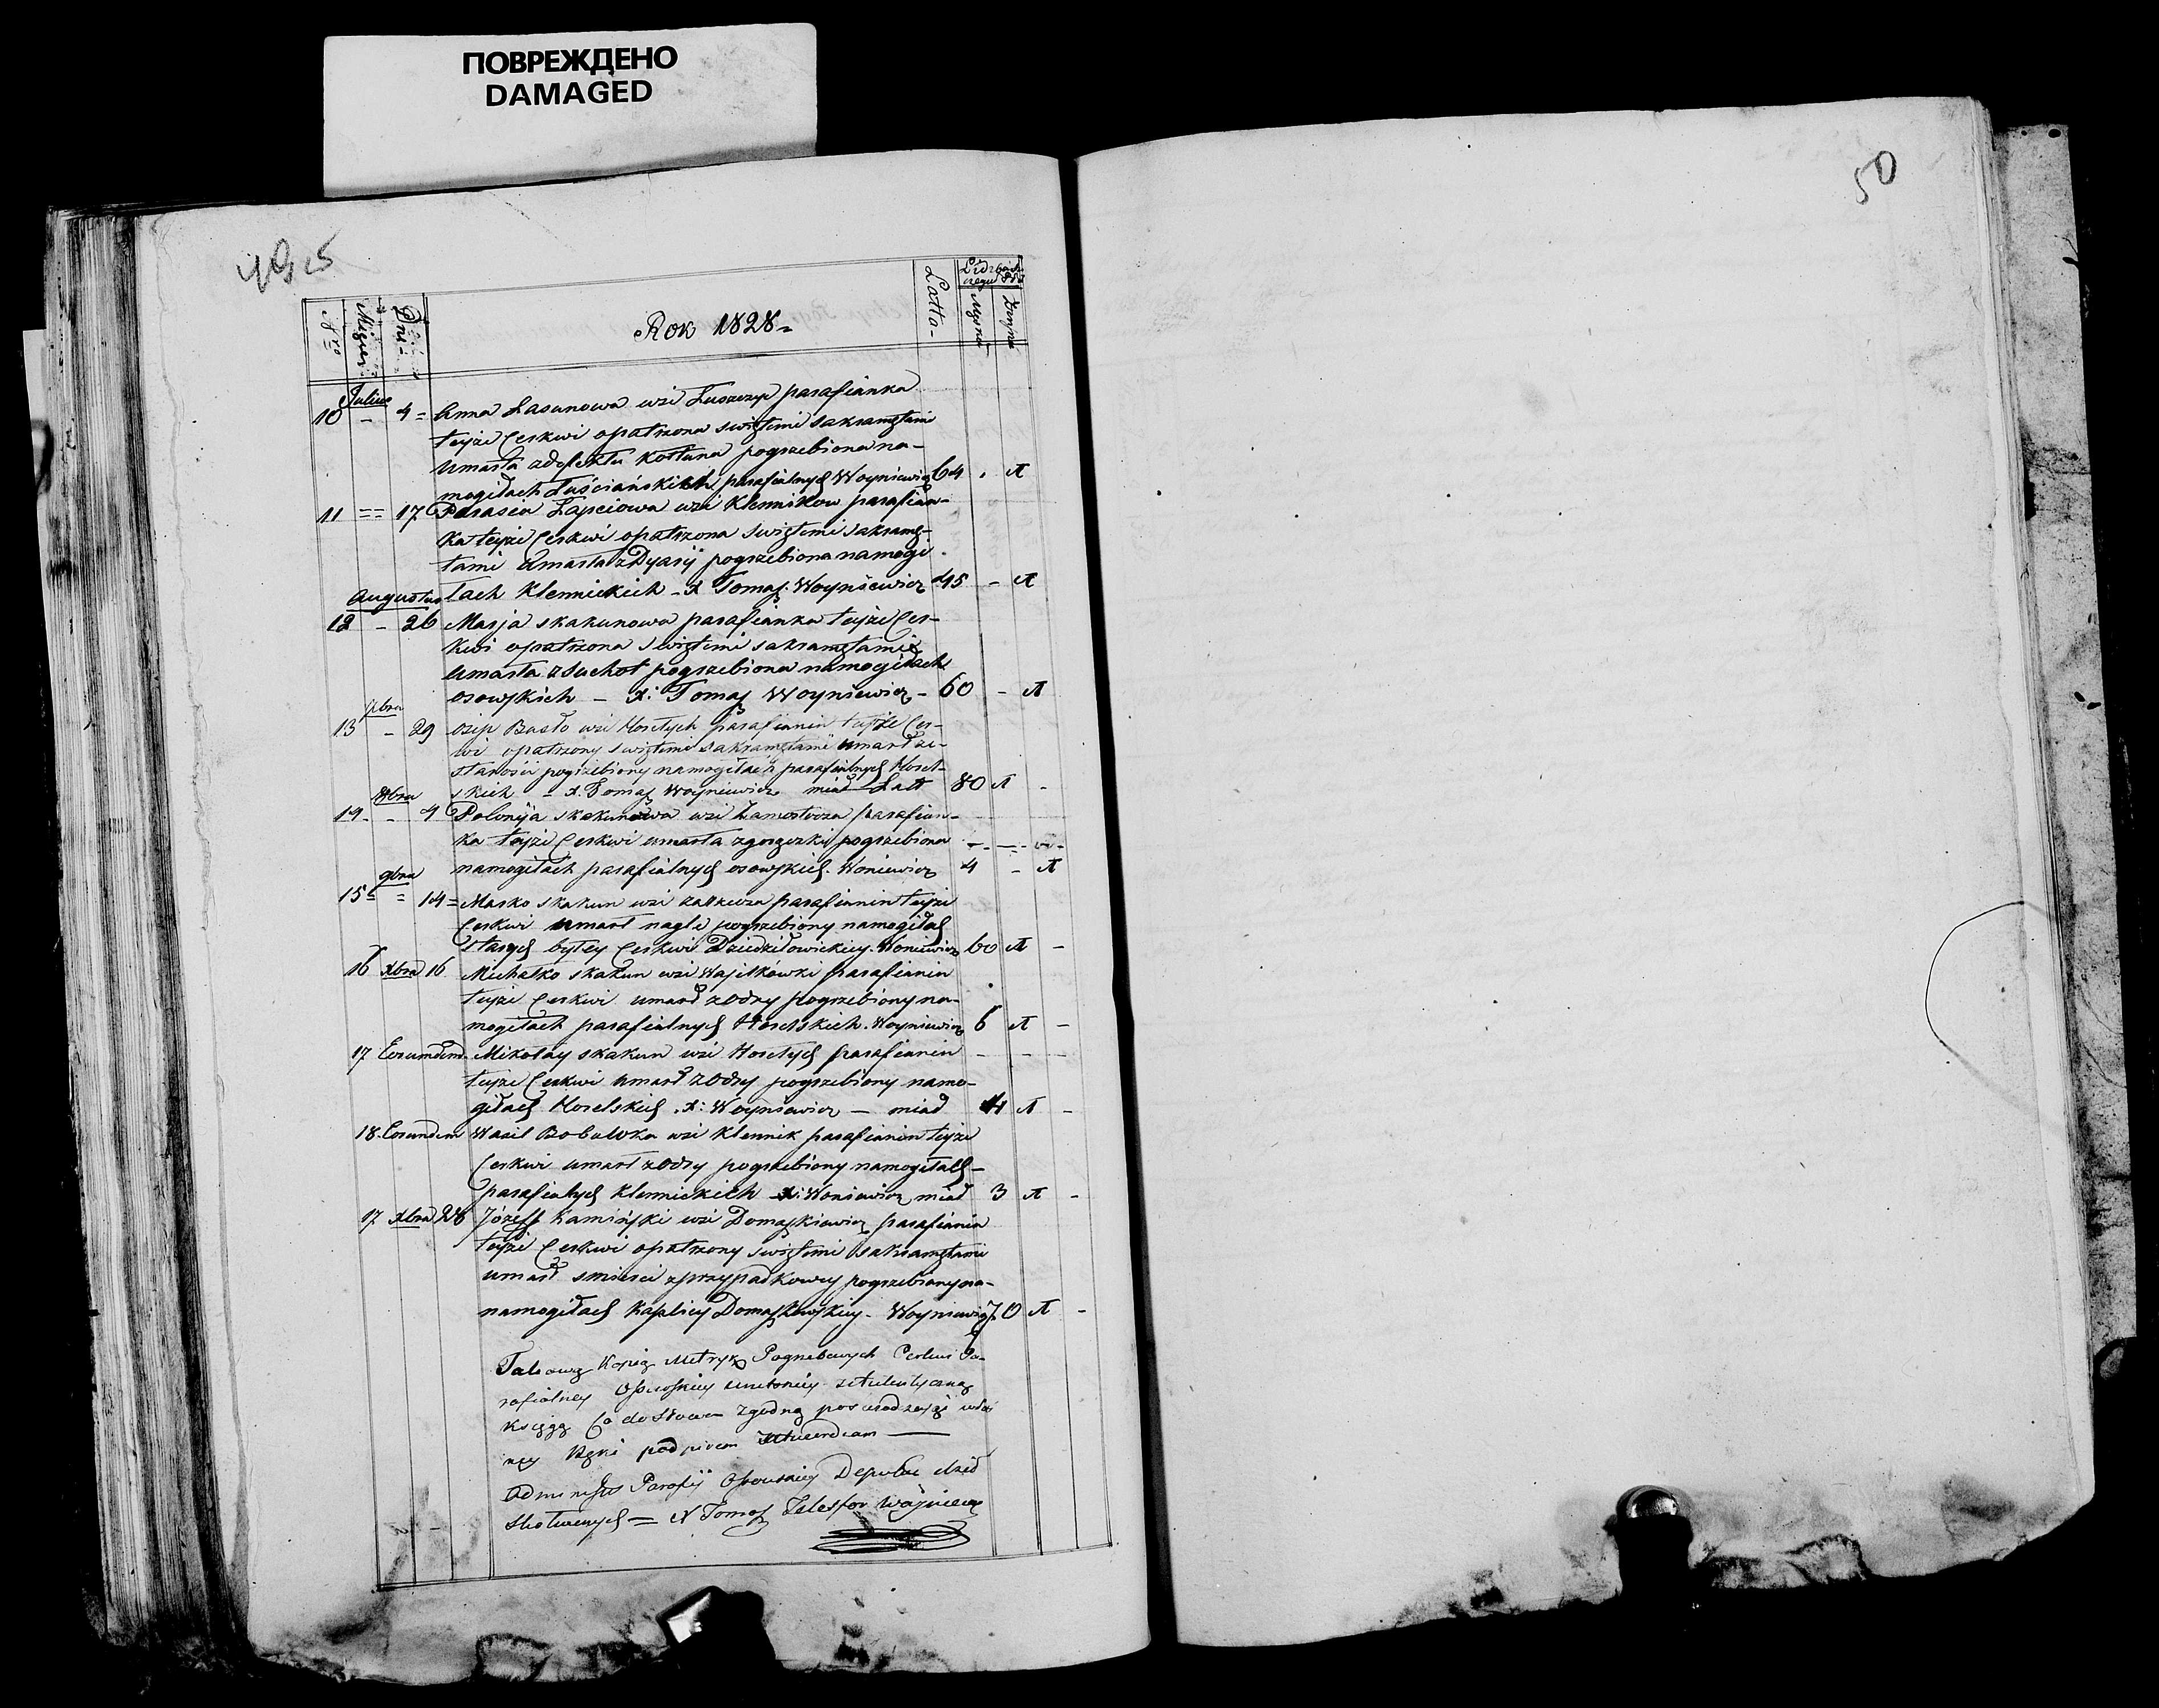 ПОВРЕЖДЕНО
DAMAGED
50
Nro Miesięc Dni Rok 1828 Latta
Julius
10 - 4 = Anna Łasunowa wsi Łuszczyc parafianka
teyże Cerkwi opatrzona swiętemi sakramętami
umarła z defektu kołtuna pogrzebiona na-
mogiłach Łuściańskich parafialnych Woyniewicz 64 . 1
11 == 17 Parasia Łapciowa wsi Klennikow parafian-
ka teyże Cerkwi opatrzona swiętemi sakramę-
tami umarła z Dyaryi pogrzebiona na mogi
Augustus łach Klennickich - X Tomasz Woyniewicz 45 - 1
12 - 26 Marja skakunowa parafianka teyże Cer-
kwi opatrzona swiętemi sakramętami
umarła z suchot pogrzebiona na mogiłach
osowskich - X: Tomasz Woyniewicz - 60 - 1
13 - 29 osip Busło wsi Horełych parafianin teyże Cer-
wi opatrzony swiętemi sakramętami umarł ze-
starości pogrzebiony na mogiłach parafialnych Horel-
skich - X. Tomasz Woyniewicz miał Latt 80 1 -
14 - - 4 Polonija skakunowa wsi Zamostocza parafian-
ka teyże Cerkwi umarła z gorączki pogrzebiona
na mogiłach parafialnych osowskich. Woniewicz 4 - 1
9bra
15 = = 14 = Marko skakun wsi parafianin teyże
Cerkwi umarł nagle pogrzebiony na mogiłach
starych byłey Cerkwi Dziedziłowickiey. Woniewicz 60 1 -
16 Xbra 16 Michałko skakun wsi Wasilkówki parafianin
teyże Cerkwi umarł z odry pogrzebiony na-
mogiłach parafialnych Horelskich. Woyniewicz 6 1 -
17 Eorumdem Mikołay skakun wsi Horełych parafianin - - -
teyże Cerkwi umarł z odry pogrzebiony na mo-
giłach Horelskich . X: Woyniewicz - miał 4 1 -
18. Eorumdem Wasil Bobuwka wsi Klennik parafianin teyże
Cerkwi umarł z odry pogrzebiony na mogiłach -
parafialnych Klennickich X: Woniewicz miał 3 1 -
17 Xbra 28 Józeff Kamiński wsi Domaszkiewicz parafianin
teyże Cerkwi opatrzony swiętemi sakramętami
umarł smierci z przypadkowey pogrzebiony na-
na mogiłach Kaplicy Domaszkowskiey - Woyniewicz 70 1 -
Takową Kopią Metryk Pogrzebowych Cerkwi Pa-
rafialney Osowskiey Unickiey z Autentyczną
Księgą Co do Słowa zgodną poswiadczając włas
ney Ręki podpisem stwierdzam
Administr Parafij Osowskiey
X Tomasz Telesfor Woyniewicz